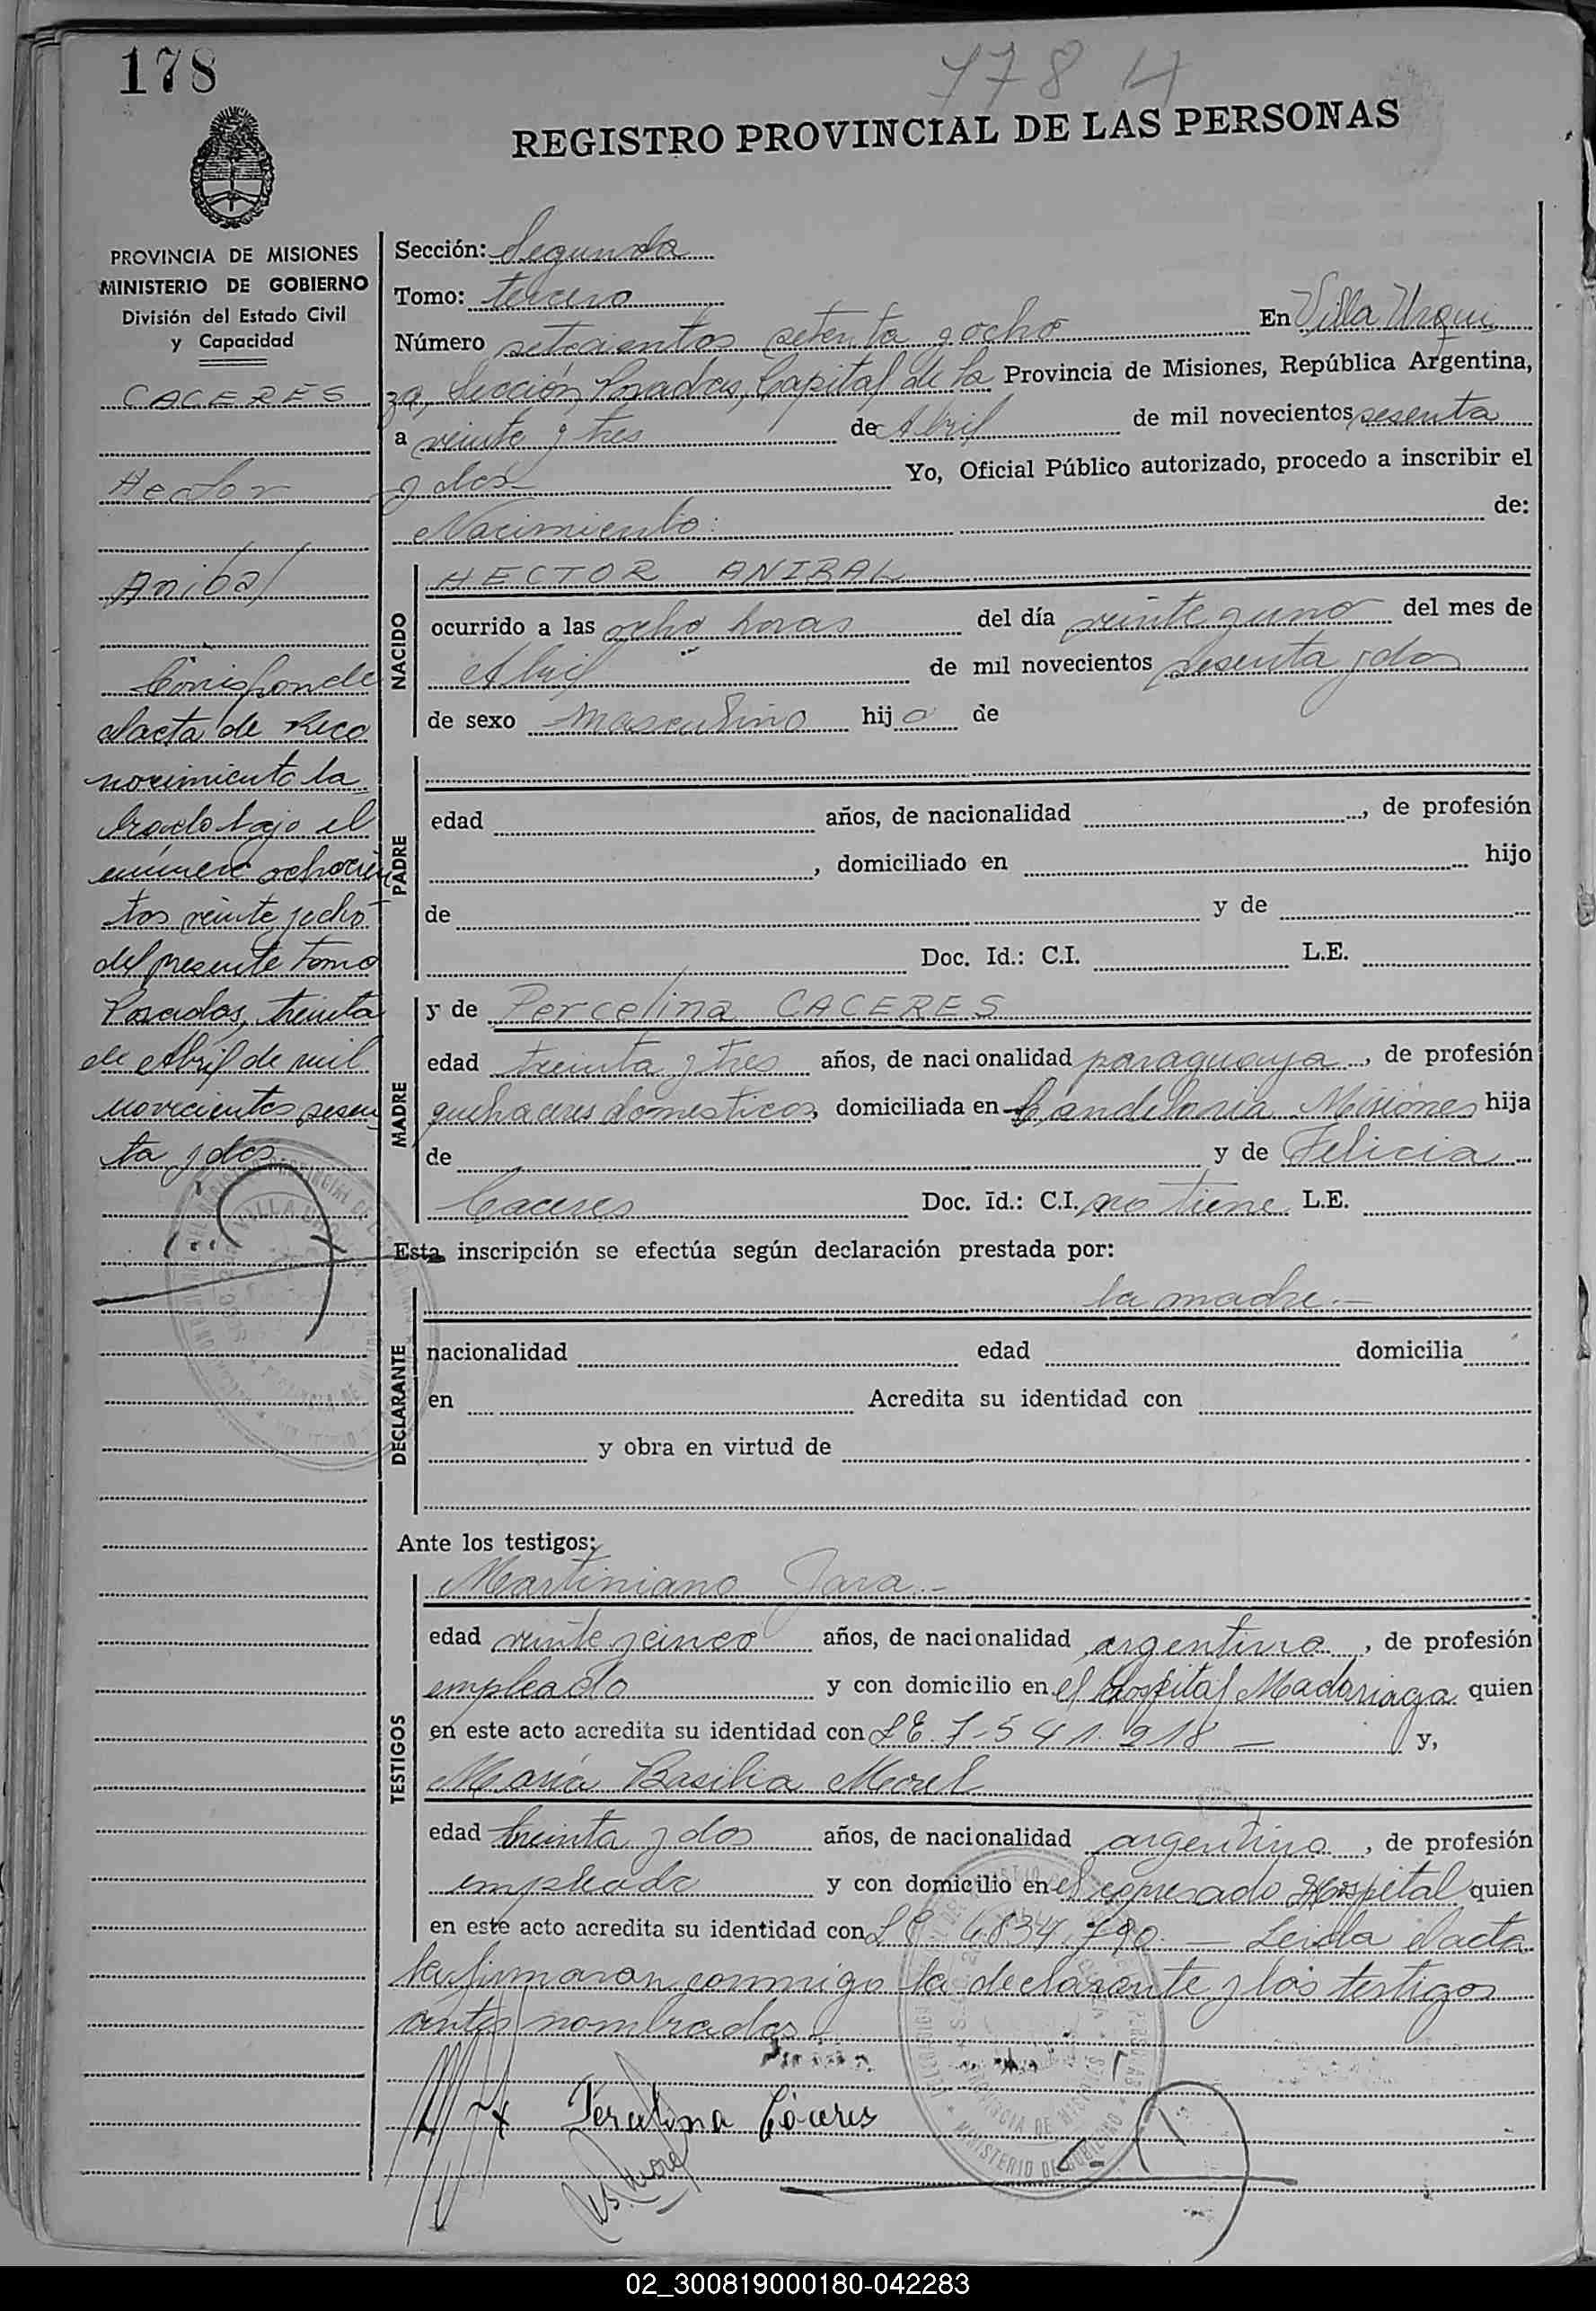 178
778 H
REGISTRO PROVINCIAL DE LAS PERSONAS
PROVINCIA DE MISIONES
MINISTERIO DE GOBIERNO
División del Estado Civil
y Capacidad
CACERES
Hector
Anibal
Corresponde
al acta de Reco
nocimiento la
brado bajo el
número ochocien
tos veinte y ocho
del presente tomo
Posadas, treinta
de Abril de mil
novecientos sesen
ta y dos
Sección: Segunda
Tomo: tercero
Número setecientos setenta y ocho En Villa Urqui
za, Sección Posadas, Capital de la Provincia de Misiones, República Argentina,
a veinte y tres de Abril de mil novecientos sesenta
y dos Yo, Oficial Público autorizado, procedo a inscribir el
Nacimiento: de:
NACIDO
HECTOR ANIBAL
ocurrido a las ocho horas del día veinte y uno del mes de
Abril de mil novecientos sesenta y dos
de sexo masculino hijo de
PADRE
edad años, de nacionalidad , de profesión
, domiciliado en hijo
de y de
Doc. Id.: C.I. L.E.
MADRE
y de Percelina CACERES
edad treinta y tres años, de nacionalidad paraguaya, de profesión
quehaceres domesticos, domiciliada en Candelaria Misiones hija
de y de Felicia
Caceres Doc. Id.: C.I. no tiene L.E.
Esta inscripción se efectúa según declaración prestada por:
DECLARANTE
la madre.-
nacionalidad edad domicilia
en Acredita su identidad con
y obra en virtud de
Ante los testigos:
TESTIGOS
Martiniano Jara.-
edad veinte y cinco años, de nacionalidad argentina, de profesión
empleado y con domicilio en el Hospital Madariaga quien
en este acto acredita su identidad con LE. 7-541.218 — y,
María Basilia Morel
edad treinta y dos años, de nacionalidad argentina, de profesión
empleada y con domicilio en el expresado Hospital quien
en este acto acredita su identidad con LC 6834.790. — Leida el acta
la firmaran conmigo la declarante y los testigos
antes nombrados.-
Percelina Cáceres
B. Morel
02_300819000180-042283